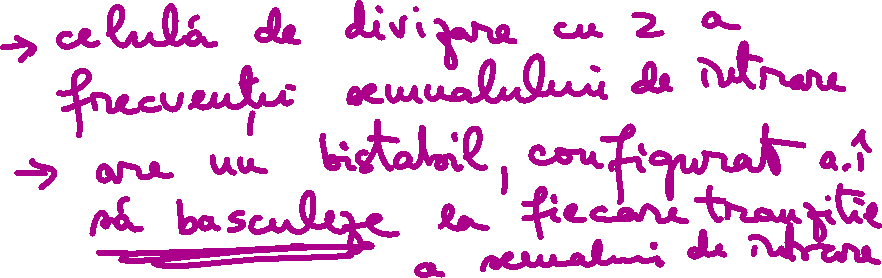 → celulă de divizare cu 2 a
frecvenței semnalului de intrare
→ are un bistabil, configurat a.î
să basculeze la fiecare tranziție
a semnalui de intrare